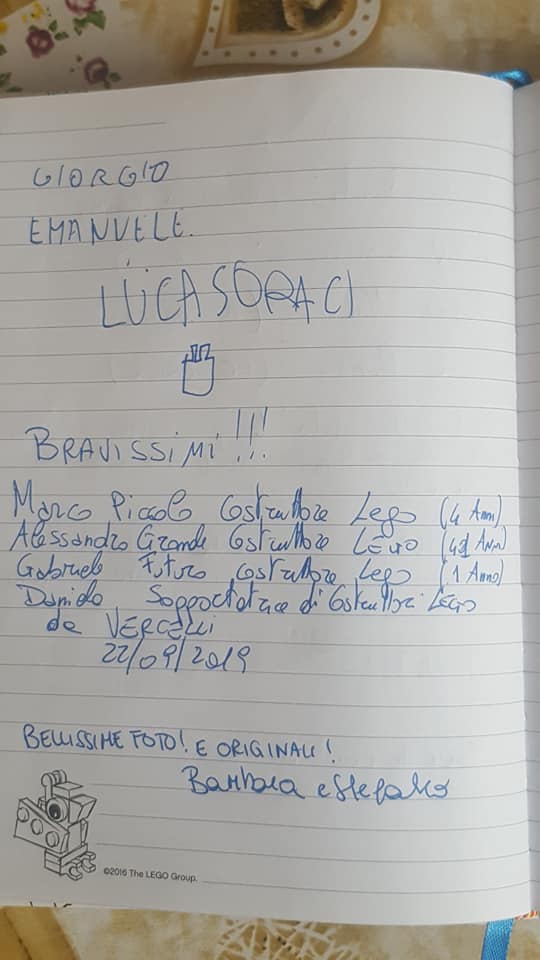 GIORGIO
EMANUELE.
LUCA SORACI
BRAVISSIMI!!!
Marco Piccolo Costruttore Lego (4 Anni)
Alessandro Grande Costruttore LEGO (41 Anni)
Gabriele Futuro Costruttore Lego (1 Anno)
di Costruttori LEGO
da VERCELLI
22/09/2019
BELLISSIME FOTO! E ORIGINALI!
Barbara e Stefano
©2016 The LEGO Group.